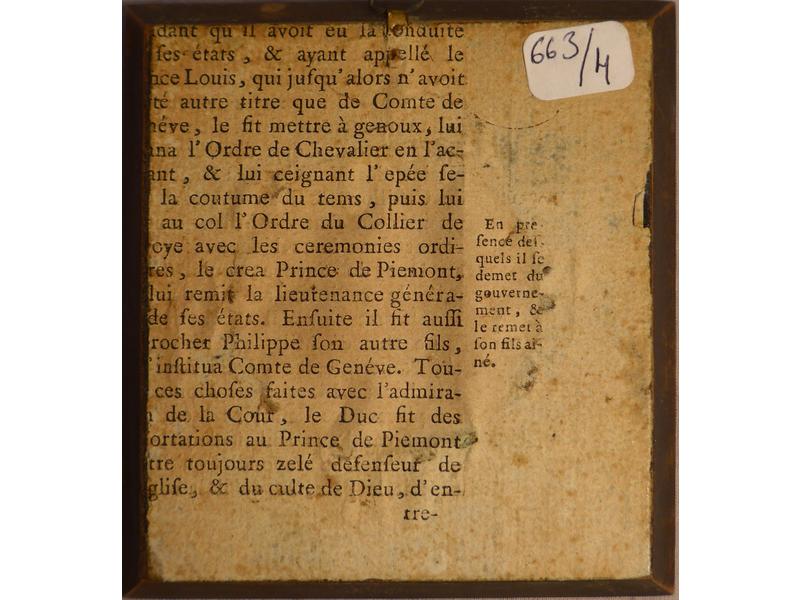 dant qu'il avoit eu la conduite
ses états, & ayant appellé le
nce Louis, qui jusqu'alors n'avoit
té autre titre que de Comte de
néve, le fit mettre à genoux, lui
nna l'Ordre de Chevalier en l'ac-
ant, & lui ceignant l'epée se-
la coutume du tems, puis lui
au col l'Ordre du Collier de
oye avec les ceremonies ordi-
res, le crea Prince de Piemont,
lui remit la lieutenance généra-
de ses états. Ensuite il fit aussi
rocher Philippe son autre fils,
l'institua Comte de Genéve. Tou-
ces choses faites avec l'admira-
de la Cour, le Duc fit des
ortations au Prince de Piemont
tre toujours zelé défenseur de
glise, & du culte de Dieu, d'en-
tre-
En pre-
sence des-
quels il se
demet du
gouverne-
ment, &
le remet à
son fils aî-
né.
663/4